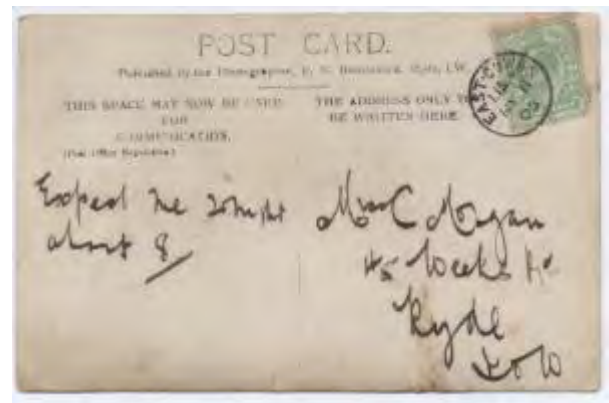 POST CARD.
Published by the Photographer, F. N. Broderick, Ryde, I.W.
THIS SPACE MAY NOW BE USED
FOR
COMMUNICATION.
(Post Office Regulation)
THE ADDRESS ONLY TO
BE WRITTEN HERE.
EAST-COWES
Expect me tonight
about 8
Miss C
45 Weeks Rd
Ryde
I o W